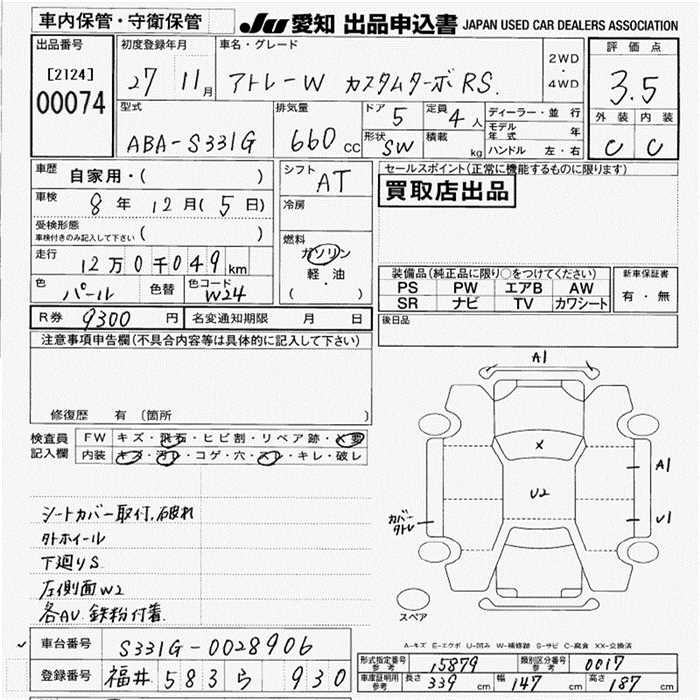 車内保管・守衛保管
JU 愛知 出品申込書 JAPAN USED CAR DEALERS ASSOCIATION
出品番号 [2124] 00074
初度登録年月 27 11月
車名・グレード アトレーW カスタムターボRS.
2WD・4WD
評価点 3.5
型式 ABA-S331G
排気量 660 cc
ドア 5 定員 4人
形状 SW 積載 kg
ディーラー・並行
モデル年式 年
ハンドル 左・右
外装 内装
C C
車歴 自家用・( )
車検 8年 12月(5日)
受検形態 車検付きのみ記入して下さい ( )
走行 12万0千049km
色 パール 色替 色コード W24
シフト AT
冷房
燃料 ガソリン
軽・油
( )
セールスポイント(正常に機能するものに限ります)
買取店出品
装備品(純正品に限り○をつけてください)
PS PW エアB AW
SR ナビ TV カワシート
新車保証書
有・無
R券 9300円 名変通知期限 月 日
後日品
注意事項申告欄(不具合内容等は具体的に記入して下さい)
修復歴 有 (箇所 )
検査員記入欄
FW キズ・飛石・ヒビ割・リペア跡・X要
内装 キズ・汚レ・コゲ・穴・スレ・キレ・破レ
シートカバー取付.破れ
タトホイール
下廻りS
左側面W2
各AU 鉄粉付着.
A1
X
U2
A1
U1
カバータトレ
スペア
A-キズ E-エクボ U-凹み W-補修跡 S-サビ C-腐食 XX-交換済
車台番号 S331G-0028906
登録番号 福井 583 ら 930
形式指定番号 参考 15879 類別区分番号 参考 0017
車庫証明用 参考 長さ 339 cm 幅 147 cm 高さ 187 cm